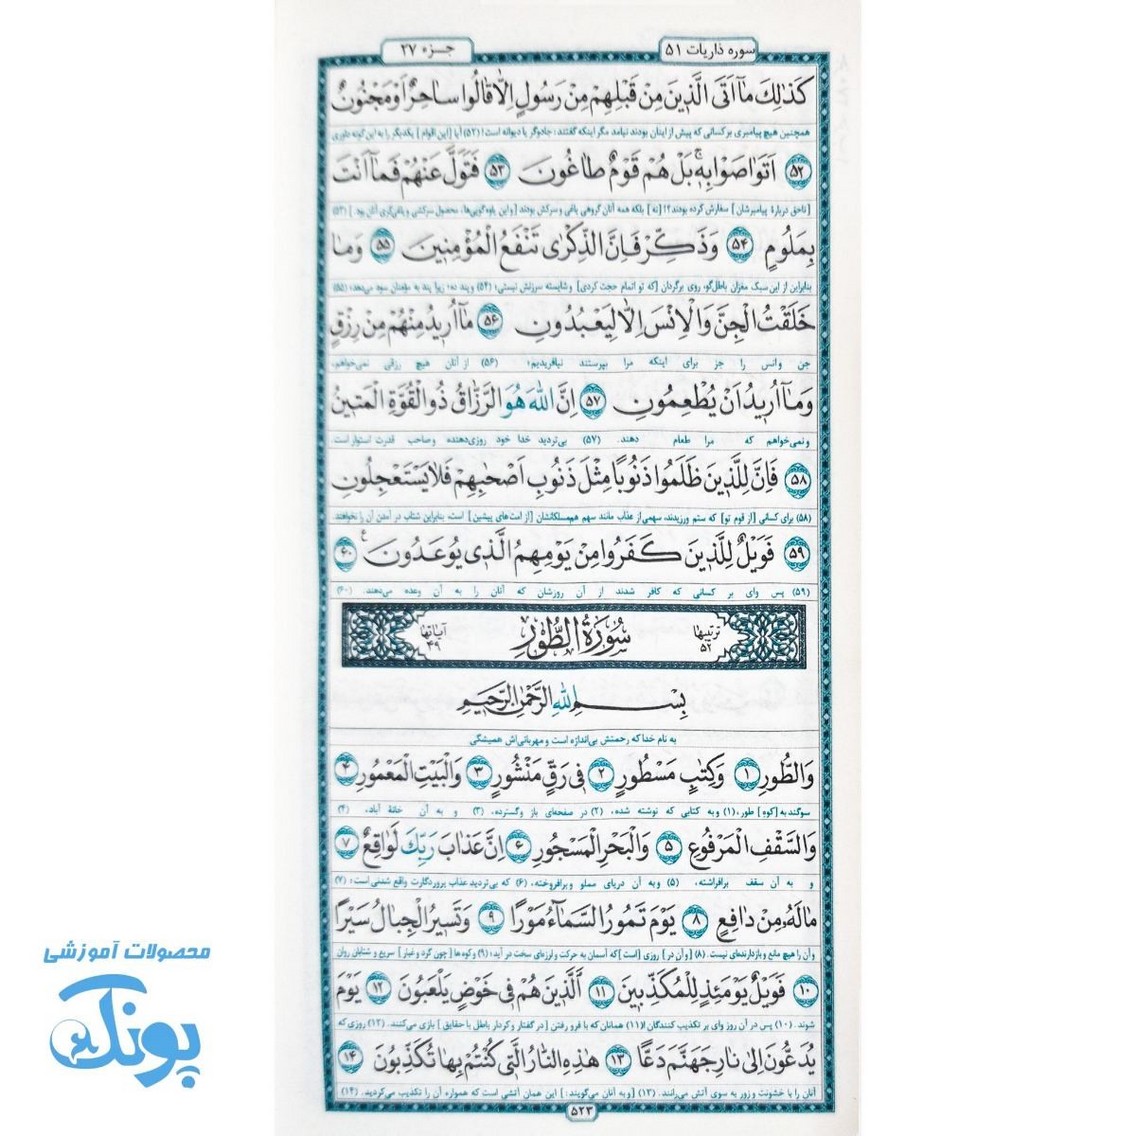 سوره ذاریات ۵۱
جزء ۲۷
كَذٰلِكَ مٰا اَتَى الَّذِينَ مِنْ قَبْلِهِمْ مِنْ رَسُولٍ اِلّٰا قٰالُوا سٰاحِرٌ اَوْ مَجْنُونٌ
همچنین هیچ پیامبری بر کسانی که پیش از اینان بودند نیامد مگر اینکه گفتند: جادوگر یا دیوانه است! (۵۲) آیا [این اقوام] یکدیگر را به این گونه داوری
۵۲ اَتَوٰاصَوْا بِهِ بَلْ هُمْ قَوْمٌ طٰاغُونَ ۵۳ فَتَوَلَّ عَنْهُمْ فَمٰا اَنْتَ
[ناحق دربارهٔ پیامبرشان] سفارش کرده بودند؟! [نه] بلکه همه آنان گروهی یاغی و سرکش بودند [و این یاوه‌گویی‌ها، محصول سرکشی و یاغی‌گری آنان بود.] (۵۳)
بِمَلُومٍ ۵۴ وَ ذَكِّرْ فَاِنَّ الذِّكْرٰى تَنْفَعُ الْمُؤْمِنِينَ ۵۵ وَ مٰا
بنابراین از این سبک مغزان باطل‌گو، روی برگردان [که تو اتمام حجت کردی] و شایسته سرزنش نیستی؛ (۵۴) و پند ده؛ زیرا پند به مؤمنان سود می‌دهد؛ (۵۵)
خَلَقْتُ الْجِنَّ وَ الْاِنْسَ اِلّٰا لِيَعْبُدُونِ ۵۶ مٰا اُرِيدُ مِنْهُمْ مِنْ رِزْقٍ
جن و انس را جز برای اینکه مرا بپرستند نیافریدیم؛ (۵۶) از آنان هیچ رزقی نمی‌خواهم،
وَ مٰا اُرِيدُ اَنْ يُطْعِمُونِ ۵۷ اِنَّ اللّٰهَ هُوَ الرَّزّٰاقُ ذُو الْقُوَّةِ الْمَتِينُ
و نمی‌خواهم که مرا طعام دهند. (۵۷) بی‌تردید خدا خود روزی‌دهنده و صاحب قدرت استوار است.
۵۸ فَاِنَّ لِلَّذِينَ ظَلَمُوا ذَنُوبًا مِثْلَ ذَنُوبِ اَصْحٰبِهِمْ فَلٰا يَسْتَعْجِلُونِ
(۵۸) برای کسانی [از قوم تو] که ستم ورزیدند، سهمی از عذاب مانند سهم هم‌مسلکانشان [از امت‌های پیشین] است، بنابراین شتاب در آمدن آن را نخواهند.
۵۹ فَوَيْلٌ لِلَّذِينَ كَفَرُوا مِنْ يَوْمِهِمُ الَّذِي يُوعَدُونَ ۶۰
(۵۹) پس وای بر کسانی که کافر شدند از آن روزشان که آنان را به آن وعده می‌دهند. (۶۰)
ترتیبها ۵۲ سُورَةُ الطُّورِ آیاتها ۴۹
بِسْمِ اللّٰهِ الرَّحْمٰنِ الرَّحِيمِ
به نام خدا که رحمتش بی‌اندازه است و مهربانی‌اش همیشگی
وَ الطُّورِ ۱ وَ كِتٰبٍ مَسْطُورٍ ۲ فِي رَقٍّ مَنْشُورٍ ۳ وَ الْبَيْتِ الْمَعْمُورِ ۴
سوگند به [کوه] طور، (۱) و به کتابی که نوشته شده، (۲) در صفحه‌ای باز و گسترده، (۳) و به آن خانهٔ آباد، (۴)
وَ السَّقْفِ الْمَرْفُوعِ ۵ وَ الْبَحْرِ الْمَسْجُورِ ۶ اِنَّ عَذٰابَ رَبِّكَ لَوٰاقِعٌ ۷
و به آن سقف برافراشته، (۵) و به آن دریای مملو و برافروخته، (۶) که بی‌تردید عذاب پروردگارت واقع شدنی است؛ (۷)
مٰا لَهُ مِنْ دٰافِعٍ ۸ يَوْمَ تَمُورُ السَّمٰاءُ مَوْرًا ۹ وَ تَسِيرُ الْجِبٰالُ سَيْرًا
و آن را هیچ مانع و بازدارنده‌ای نیست. (۸) [و آن در] روزی [است] که آسمان به حرکت و لرزه‌ای سخت در آید؛ (۹) و کوه‌ها [چون گرد و غبار] سریع و شتابان روان
۱۰ فَوَيْلٌ يَوْمَئِذٍ لِلْمُكَذِّبِينَ ۱۱ اَلَّذِينَ هُمْ فِي خَوْضٍ يَلْعَبُونَ ۱۲ يَوْمَ
شوند. (۱۰) پس در آن روز وای بر تکذیب کنندگان! (۱۱) همانان که با فرو رفتن [در گفتار و کردار باطل با حقایق] بازی می‌کنند. (۱۲) روزی که
يُدَعُّونَ اِلٰى نٰارِ جَهَنَّمَ دَعًّا ۱۳ هٰذِهِ النّٰارُ الَّتِي كُنْتُمْ بِهٰا تُكَذِّبُونَ ۱۴
آنان را با خشونت و زور به سوی آتش می‌رانند. (۱۳) [و به آنان می‌گویند:] این همان آتشی است که همواره آن را تکذیب می‌کردید. (۱۴)
۵۲۳
محصولات آموزشی
پونک